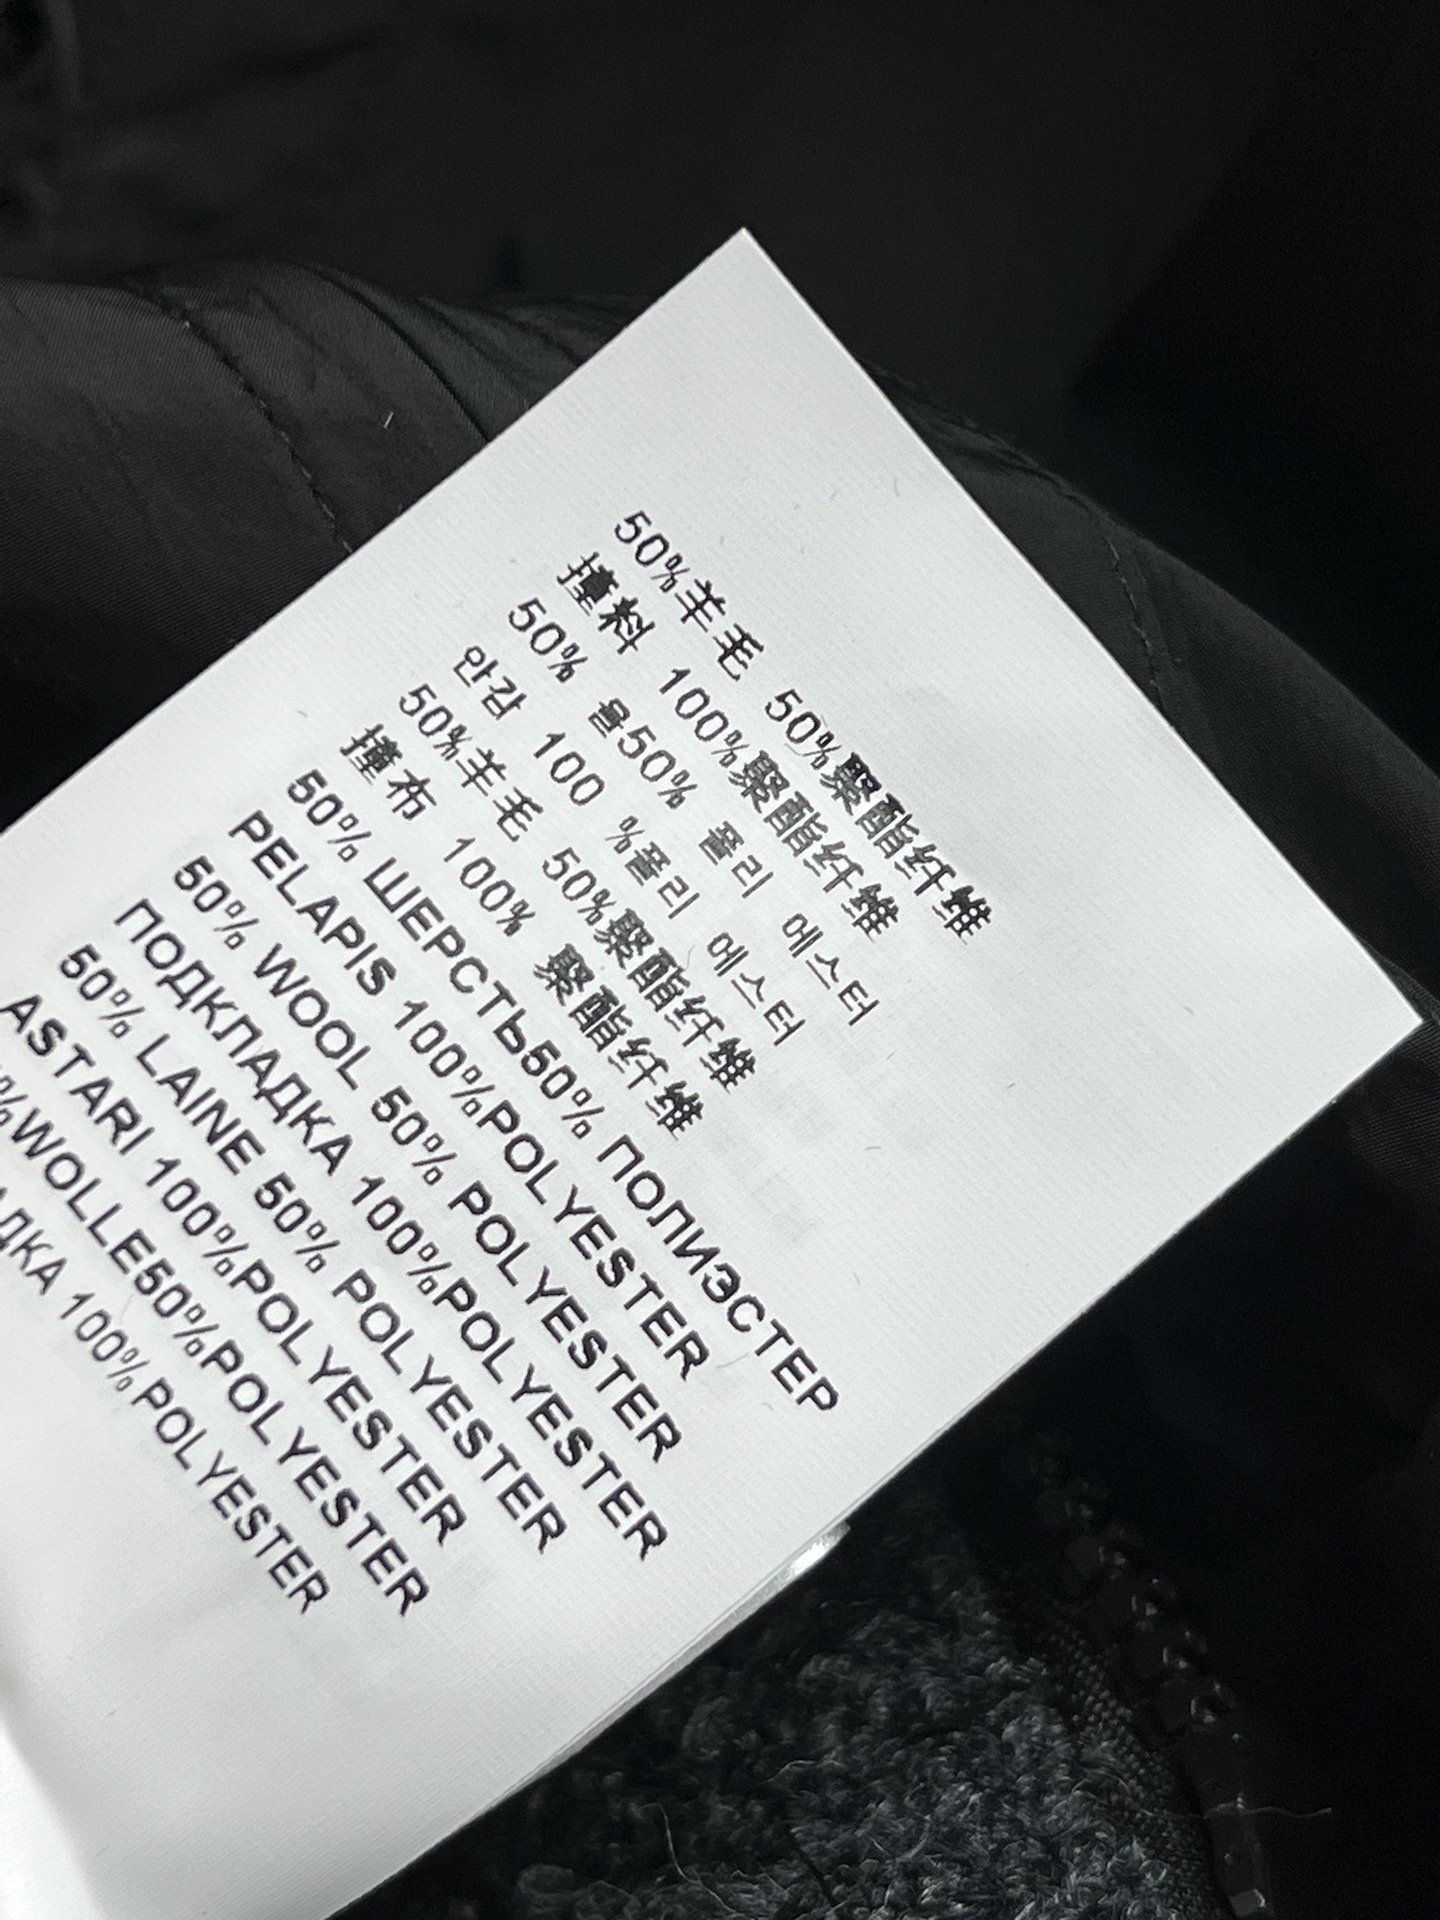 50%羊毛 50%聚酯纤维
撞料 100%聚酯纤维
50% 울50% 폴리 에스터
안감 100 %폴리 에스터
50%羊毛 50%聚酯纤维
撞布 100% 聚酯纤维
50% ШЕРСТЬ50% ПОЛИЭСТЕР
PELAPIS 100%POLYESTER
50% WOOL 50% POLYESTER
ПОДКЛАДКА 100%POLYESTER
50% LAINE 50% POLYESTER
ASTARI 100%POLYESTER
%WOLLE50%POLYESTER
ДКА 100%POLYESTER